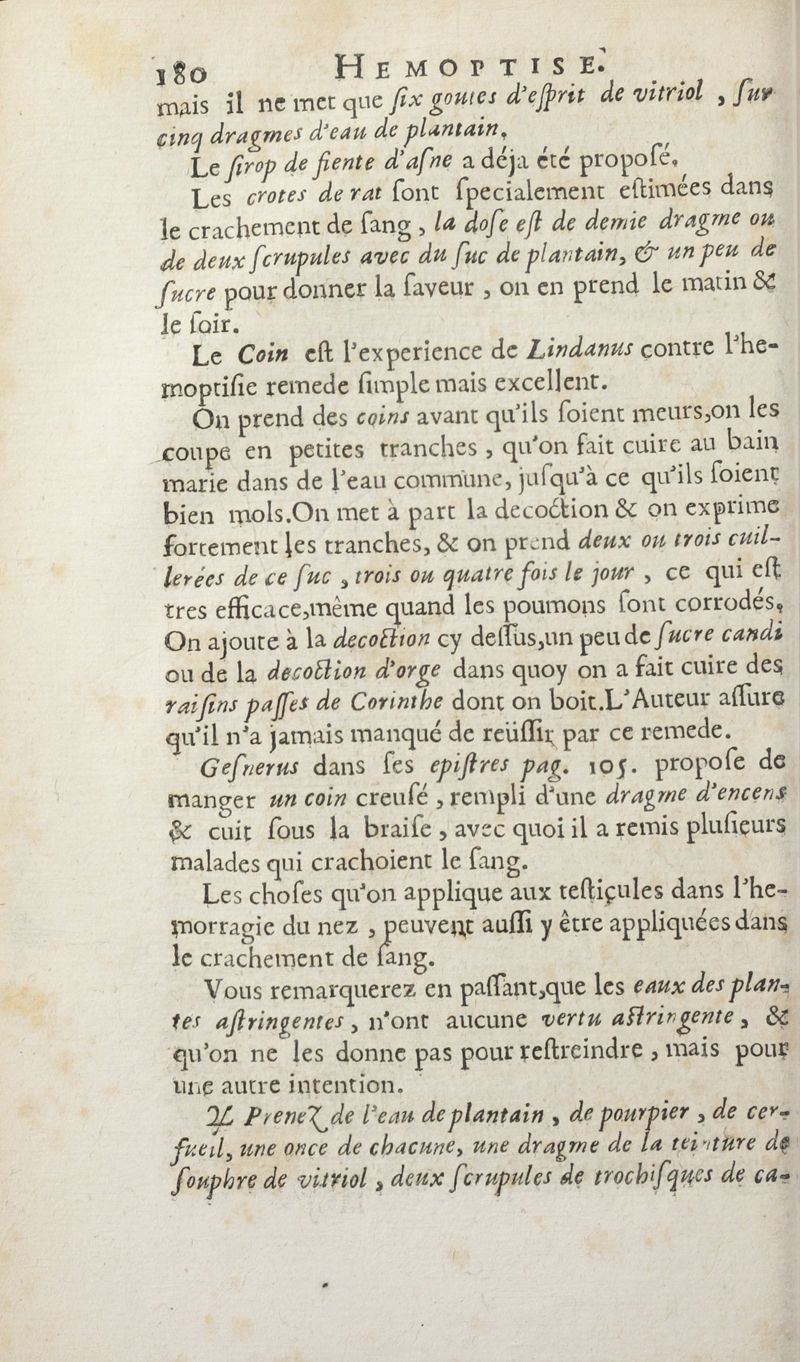 180 HEMOPTISE.
mais il ne met que ſix goutes d'eſprit de vitriol , ſur
cinq dragmes d'eau de plantain.
Le ſirop de fiente d'aſne a déja été propoſé.
Les crotes de rat ſont ſpecialement eſtimées dans
le crachement de ſang , la doſe eſt de demie dragme ou
de deux ſcrupules avec du ſuc de plantain, & un peu de
ſucre pour donner la ſaveur , on en prend le matin &
le ſoir.
Le Coin eſt l'experience de Lindanus contre l'he-
moptiſie remede ſimple mais excellent.
On prend des coins avant qu'ils ſoient meurs,on les
coupe en petites tranches , qu'on fait cuire au bain
marie dans de l'eau commune, juſqu'à ce qu'ils ſoient
bien mols.On met à part la decoction & on exprime
fortement les tranches, & on prend deux ou trois cuil-
lerées de ce ſuc , trois ou quatre fois le jour , ce qui eſt
tres efficace,même quand les poumons ſont corrodés.
On ajoute à la decoction cy deſſus,un peu de ſucre candi
ou de la decoction d'orge dans quoy on a fait cuire des
raiſins paſſes de Corinthe dont on boit.L'Auteur aſſure
qu'il n'a jamais manqué de reüſſir par ce remede.
Geſnerus dans ſes epiſtres pag. 105. propoſe de
manger un coin creuſé , rempli d'une dragme d'encens
& cuit ſous la braiſe , avec quoi il a remis pluſieurs
malades qui crachoient le ſang.
Les choſes qu'on applique aux teſticules dans l'he-
morragie du nez , peuvent auſſi y être appliquées dans
le crachement de ſang.
Vous remarquerez en paſſant,que les eaux des plan-
tes aſtringentes , n'ont aucune vertu aſtringente , &
qu'on ne les donne pas pour reſtreindre , mais pour
une autre intention.
♃ Prenez de l'eau de plantain , de pourpier , de cer-
fueil, une once de chacune, une dragme de la teinture de
ſouphre de vitriol , deux ſcrupules de trochiſques de ca-